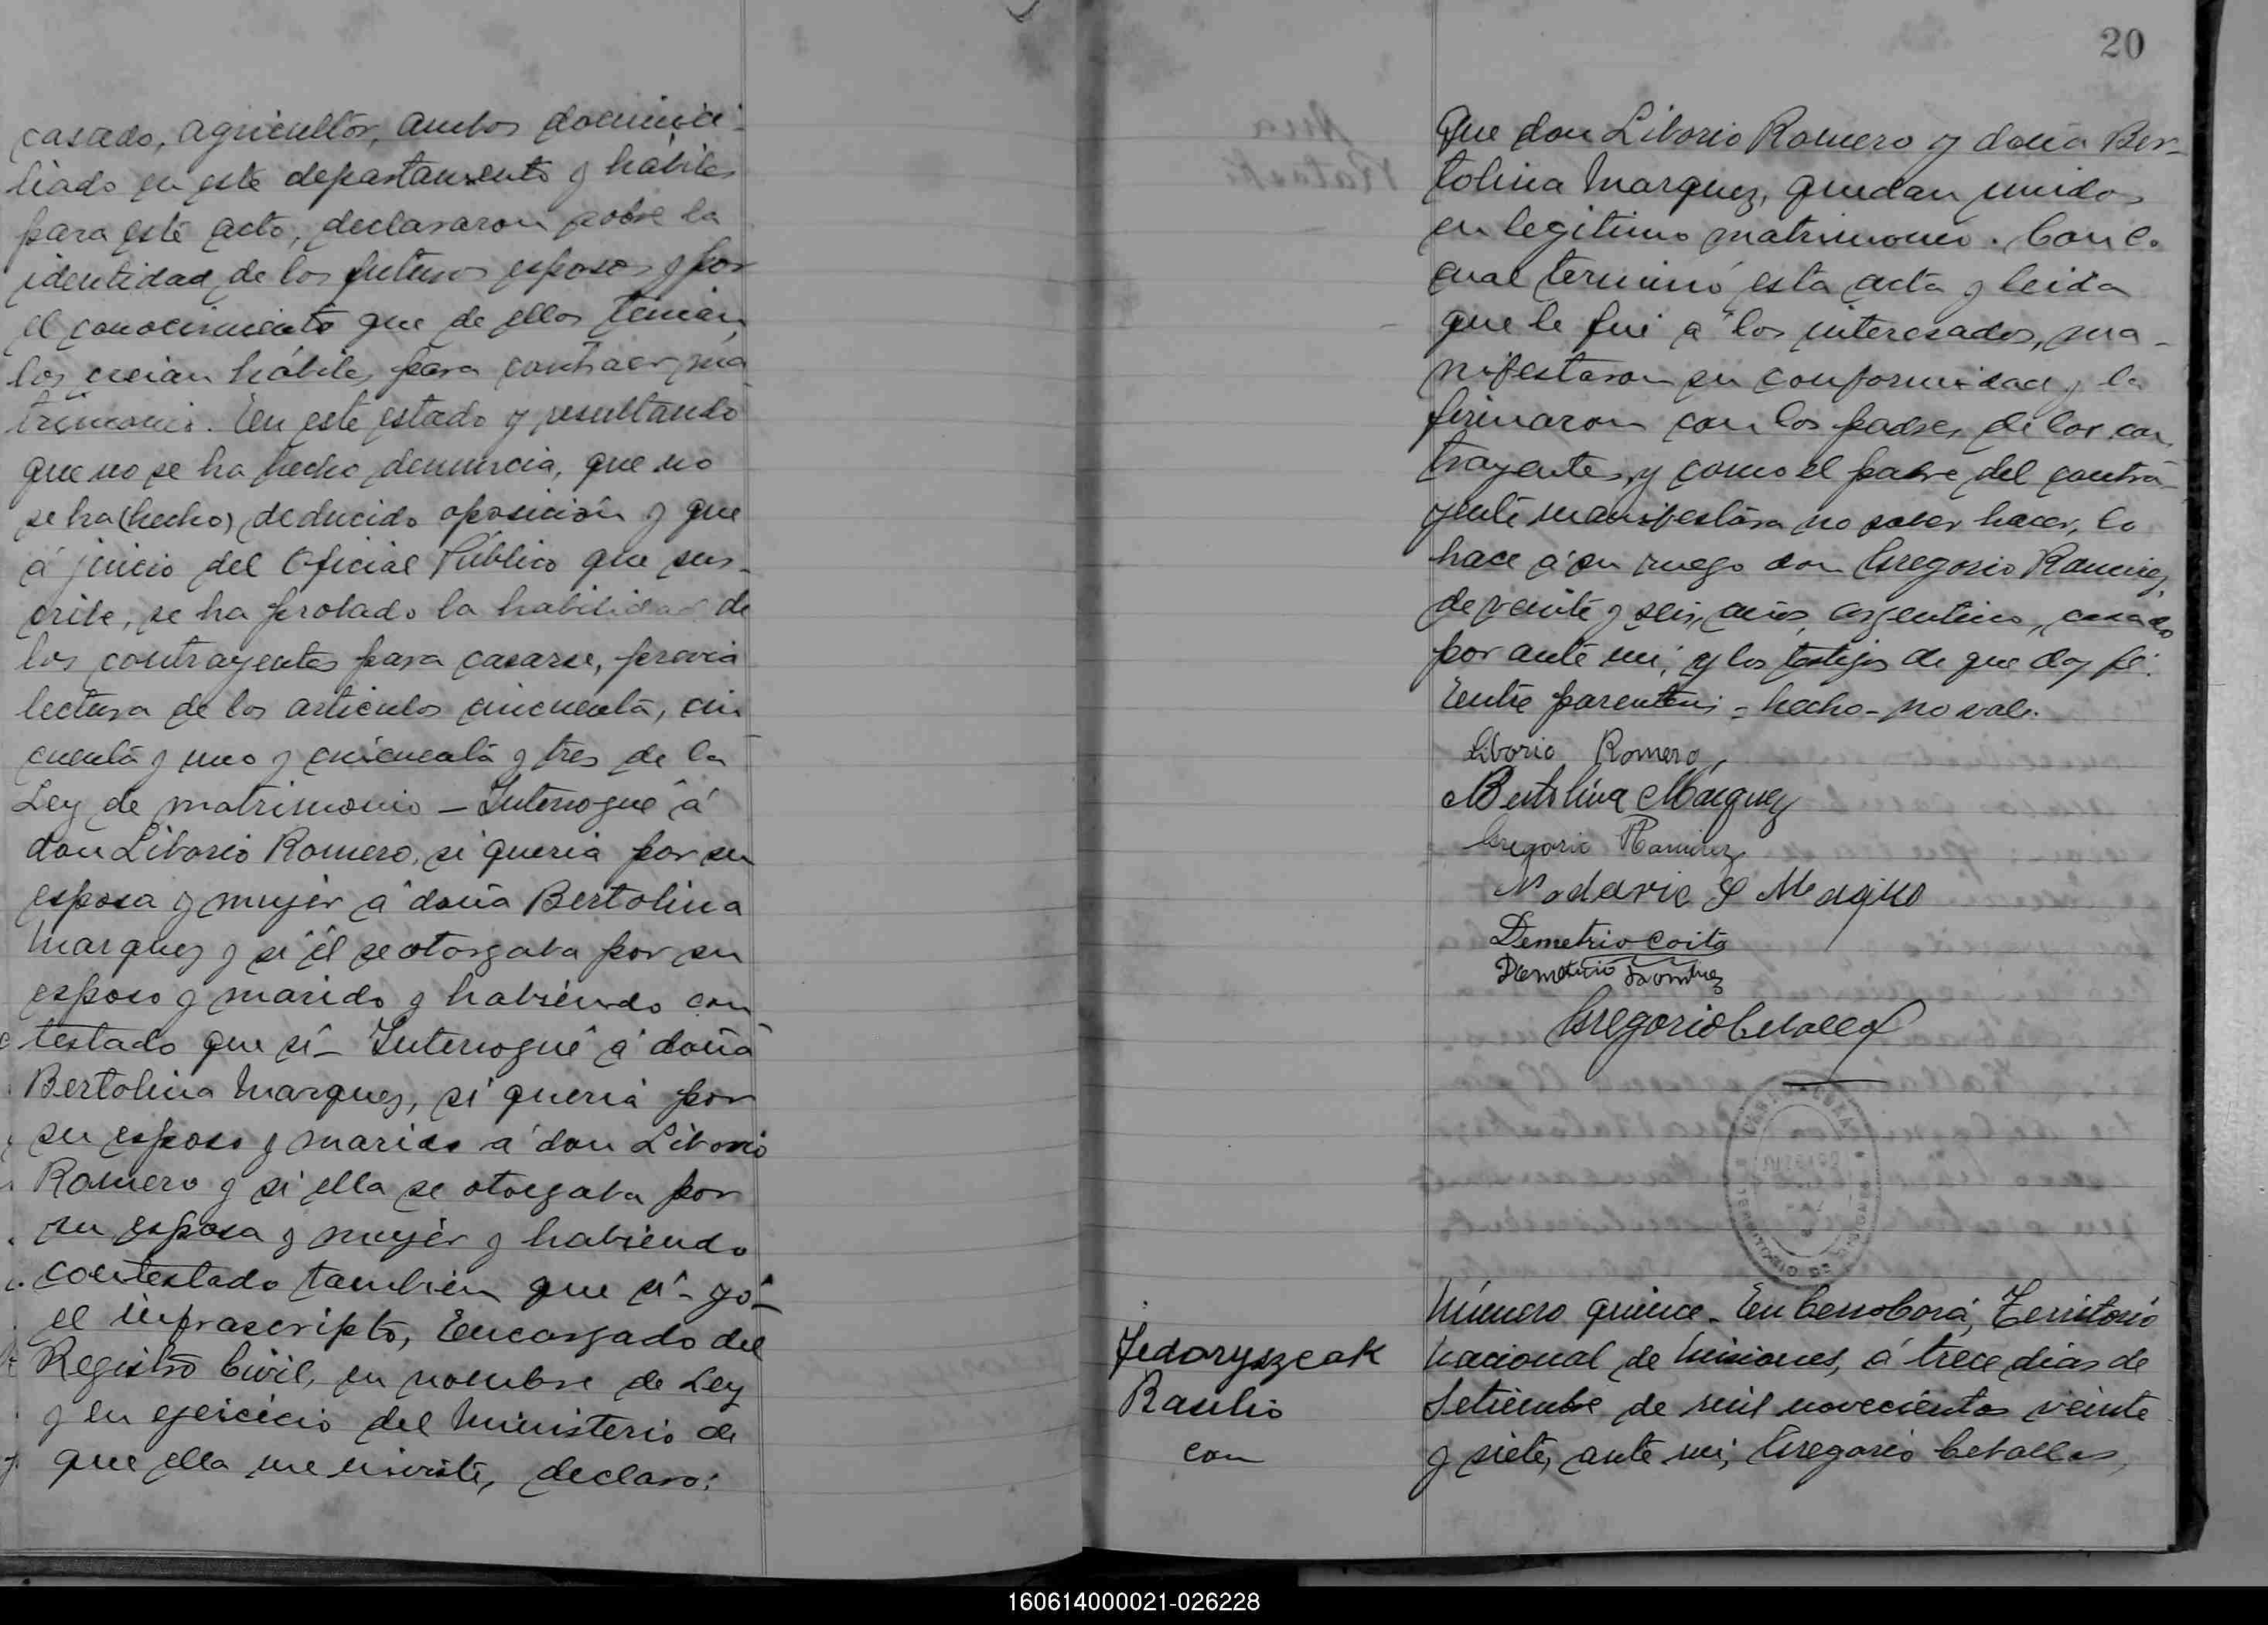 casado, agricultor, ambos domici-
liado en este departamento y hábiles
para este acto, declararon sobre la
identidad de los futuros esposos y por
el conocimiento que de ellos tenian,
los creian hábiles para contraer ma
trimonio. En este estado y resultando
que no se ha hecho denuncia, que no
se ha (hecho) deducido oposición y que
á juicio del Oficial Público que sus-
cribe, se ha probado la habilidad de
los contrayentes para casarse, previa
lectura de los articulos cincuenta, cin
cuenta y uno y cincuenta y tres de la
Ley de matrimonio - Interrogué á
don Liborio Romero, si queria por su
esposa y mujer á doña Bertolina
Marquez y si él se otorgaba por su
esposo y marido y habiendo con
testado que sí - Interrogué á doña
Bertolina Marquez, si queria por
su esposo y marido a don Liborio
Romero y si ella se otorgaba por
su esposa y mujer y habiendo
contestado tambien que sí - yó -
el infrascripto, Encargado del
Registro Civil, en nombre de Ley
y en ejercicio del Ministerio de
que ella me inviste, declaro:
20
Que don Liborio Romero y doña Ber-
tolina Marquez, quedan unidos
en legitimo matrimonio. Con lo
cual terminó esta acta y leida
que le fui a los interesados, ma-
nifestaron su conformidad y la
firmaron con los padres de los con
trayentes, y como el padre del contra-
yente manifestára no saber hacer, lo
hace á su ruego don Gregorio Ramirez,
de veinte y seis, años, argentino, casado
por ante mi, y los testigos de que doy fé.
Entre parentesis = hecho - no vale.
Liborio Romero
Bertolina Márquez
Gregorio Ramirez
Demetrio Coito
Demetrio
Gregorio Cevallos
TERRITORIO DE MISIONES
Fedoryszcak
Basilio
con
Número quince - En Cerro Corá, Territorio
Nacional de Misiones, á trece dias de
Setiembre de mil novecientos veinte
y siete, ante mi, Gregorio Cevallos,
160614000021-026228